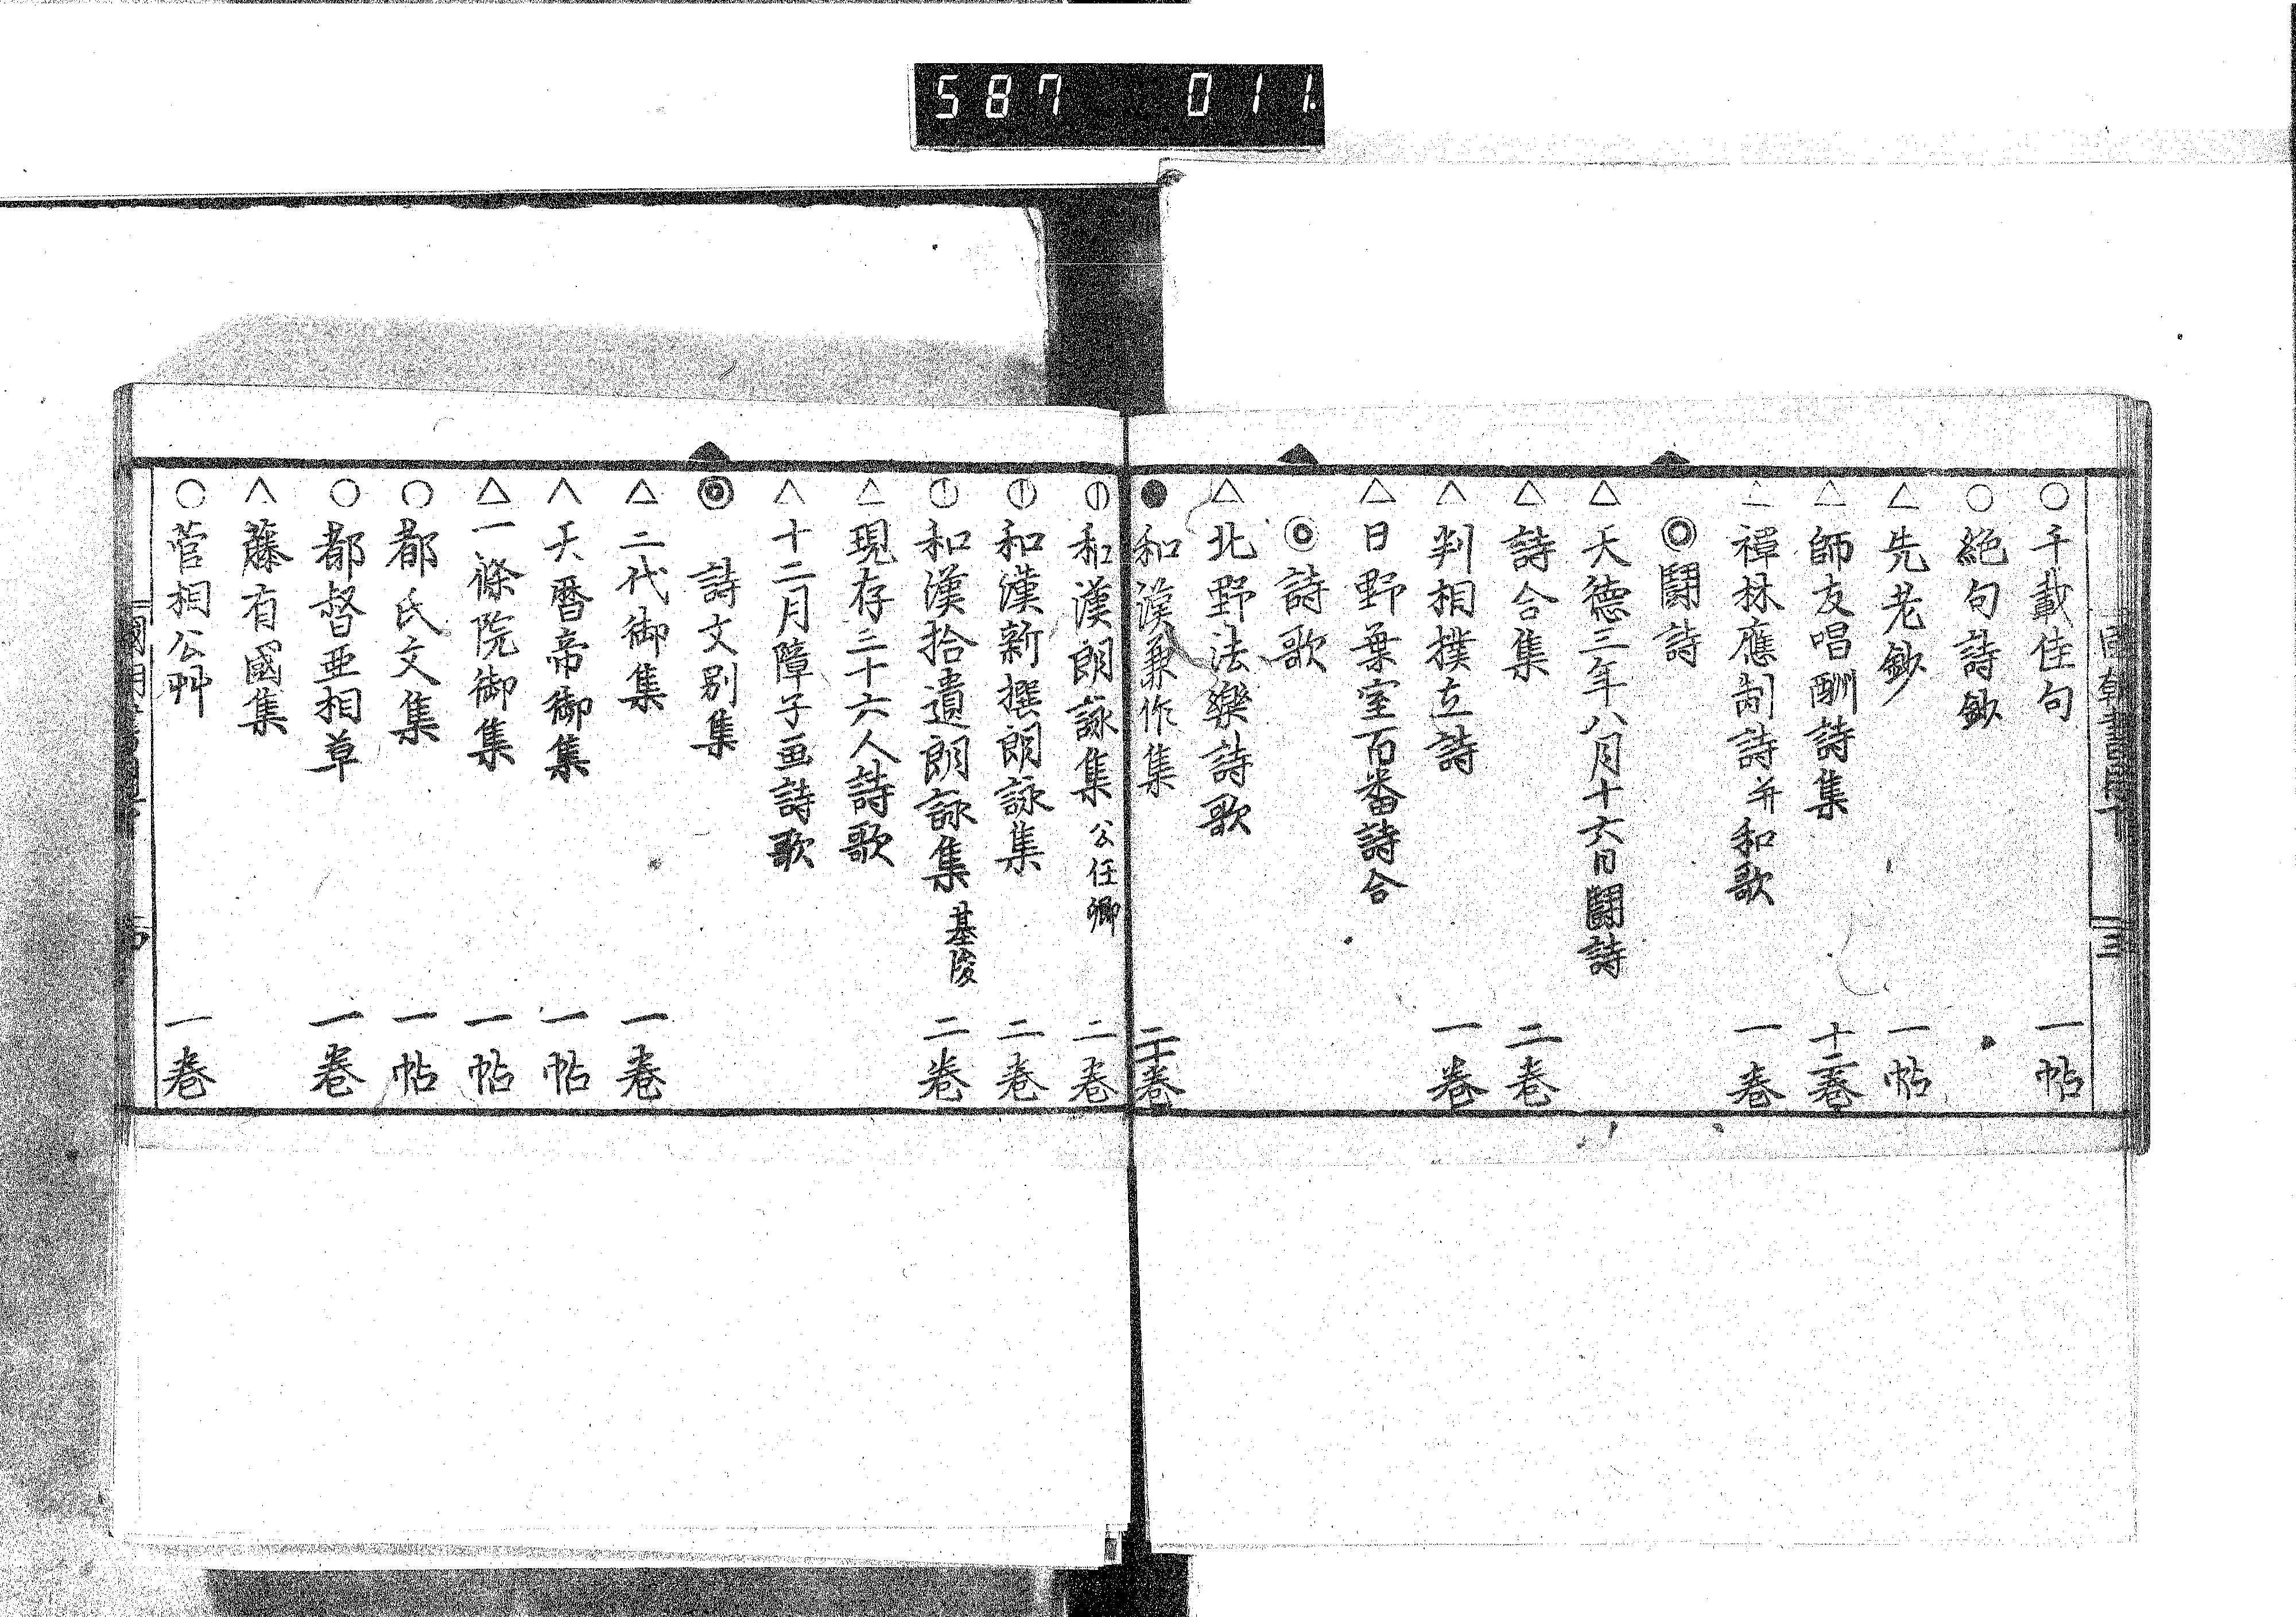 587 011
○千載佳句 一帖
○絶句詩鈔
△先老鈔 一帖
△師友唱酬詩集 十二巻
△禅林應制詩并和歌 一巻
◎闘詩
△天德三年八月十六日闘詩
△詩合集 二巻
△判相撲立詩 一巻
△日野葉室百番詩合
◎詩歌
△北野法樂詩歌
●和漢兼作集 二十巻
和漢朗詠集 公任卿 二巻
和漢新撰朗詠集 二巻
和漢拾遺朗詠集 基俊 二巻
△現存三十六人詩歌
△十二月障子画詩歌
◎詩文別集
△二代御集 一巻
△天暦帝御集 一帖
△一條院御集 一帖
○都氏文集 一帖
○都督亜相草 一巻
△藤有國集
○菅相公艸 一巻
三